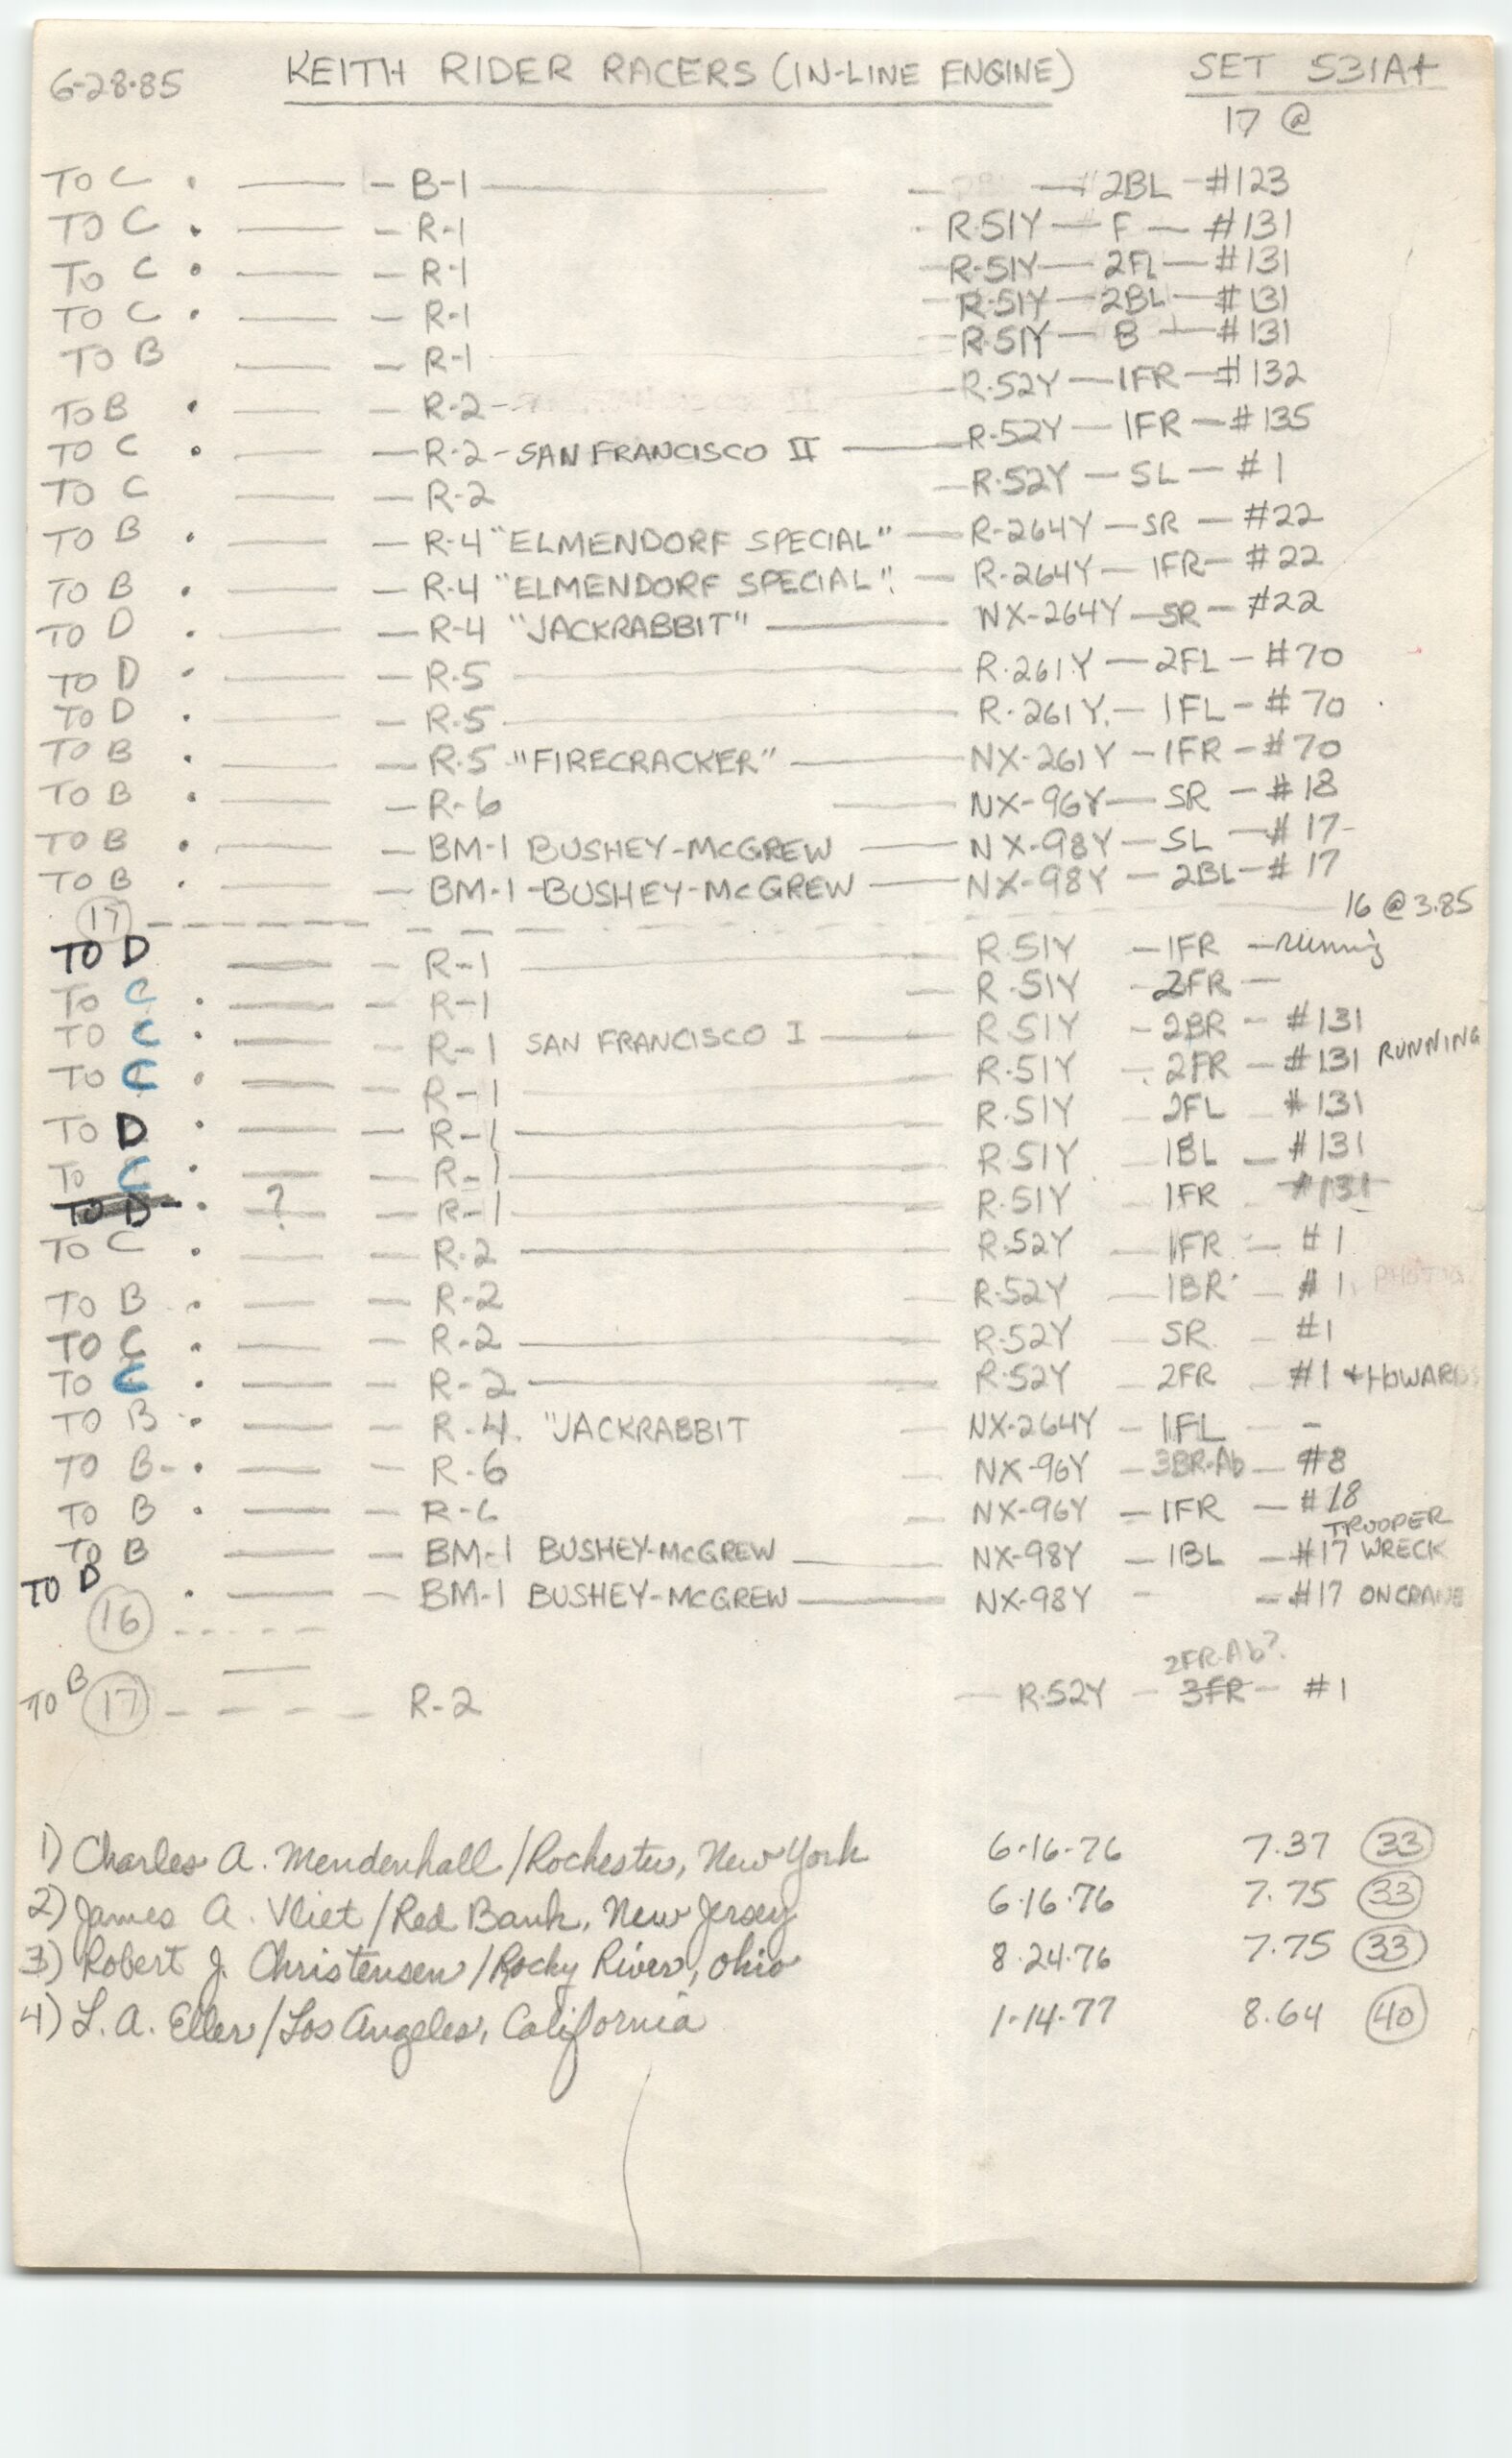 6-28-85 KEITH RIDER RACERS (IN-LINE ENGINE) SET 531A+
17 @
TO C . — - B-1 — — 2BL - #123
TO C . — - R-1 - R-51Y — F — #131
TO C . — - R-1 - R-51Y — 2FL — #131
TO C . — - R-1 - R-51Y — 2BL — #131
TO B — - R-1 - R-51Y — B — #131
TO B . — - R-2 - R-52Y — 1FR — #132
TO C . — - R-2 - SAN FRANCISCO II — R-52Y — 1FR — #135
TO C — - R-2 - R-52Y — SL — #1
TO B . — - R-4 "ELMENDORF SPECIAL" — R-264Y — SR — #22
TO B . — - R-4 "ELMENDORF SPECIAL". — R-264Y — 1FR — #22
TO D . — - R-4 "JACKRABBIT" — NX-264Y — SR — #22
TO D . — - R-5 — R-261Y — 2FL — #70
TO D . — - R-5 — R-261Y. — 1FL — #70
TO B . — - R-5 "FIRECRACKER" — NX-261Y — 1FR — #70
TO B . — - R-6 — NX-96Y — SR — #18
TO B . — - BM-1 BUSHEY-McGREW — NX-98Y — SL — #17
TO B . — - BM-1-BUSHEY-McGREW — NX-98Y — 2BL — #17
17 - - - - - - - 16 @ 3.85
TO D — - R-1 — R-51Y — 1FR — running
TO C . — - R-1 - R-51Y - 2FR —
TO C . — - R-1 SAN FRANCISCO I — R-51Y - 2BR - #131
TO C . — - R-1 — R-51Y - 2FR — #131 RUNNING
TO D . — - R-1 — R-51Y - 2FL - #131
TO C . — - R-1 — R-51Y - 1BL - #131
TO D . ? — - R-1 — R-51Y 1FR - #131
TO C . — - R-2 — R-52Y - 1FR - #1
TO B . — - R-2 - R-52Y - 1BR - #1
TO C . — - R-2 — R-52Y - SR - #1
TO C . — - R-2 — R-52Y - 2FR - #1 + HOWARD
TO B . — - R-4. "JACKRABBIT - NX-264Y - 1FL - -
TO B - . — - R-6 - NX-96Y - 3BR-Ab - #8
TO B . — - R-6 - NX-96Y - 1FR - #18
TO B — - BM-1 BUSHEY-McGREW — NX-98Y - 1BL - #17 TROOPER WRECK
TO D . — - BM-1 BUSHEY-McGREW — NX-98Y - - #17 ON CRANE
16 - - - - -
2FR-Ab?
TO B 17 - - - - R-2 - R-52Y - 3FR - #1
1) Charles A. Mendenhall/Rochester, New York 6-16-76 7.37 33
2) James A. Vliet/Red Bank, New Jersey 6-16-76 7.75 33
3) Robert J. Christensen/Rocky River, Ohio 8-24-76 7.75 33
4) L. A. Eller/Los Angeles, California 1-14-77 8.64 40